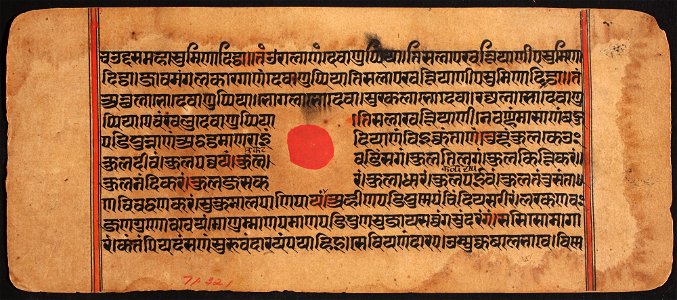 चउद्दसमहासुमिणादिट्ठा।।तंउरालाणंदेवाणुप्पिया।।तिसलाएखत्तियाणीएसुमिणा
दिट्ठा।।जावमंगलकारगाणंदेवाणुप्पिया।तिसलाएखत्तियाणीएसुमिणादिट्ठा।।तं
अत्थलाभोदेवाणुप्पिया।।भोगलाभो।देवा।सुरकलाभोदेवा।रज्जलाभोदेवाणु
प्पिया।एवंखलुदेवाणुप्पिया ।तिसलाखत्तियाणीनवण्हंमासाणंबहु
पडिपुन्नाणंअद्धठमाणराइं दियाणंविइक्कंताणं।अम्हंकुलकेउं
कुलदीवं।कुलपव्वयं।कुल। वडिंसगं।कुलतिलगं।कुलकित्तिकरं।।
कुलनंदिकरं।कुलजसक रं।कुलाधारं।कुलपायवं।कुलतंतुसंता
णविवद्धणकरंसुकुमालपाणिपायं।अहीणपडिपुन्नपंचिंदियसरीरं।लरकणवं
जणगुणोववेयंमाणुम्माणपमाणपडिपुण्णसुजायसव्वंगसुंदरंगं।ससिसोमागा
रं।कंतंपियदंसणंसुरूवंदारयंपयाहिसि।।सेवियणंदारए।उम्मुक्कबालभावे।विस